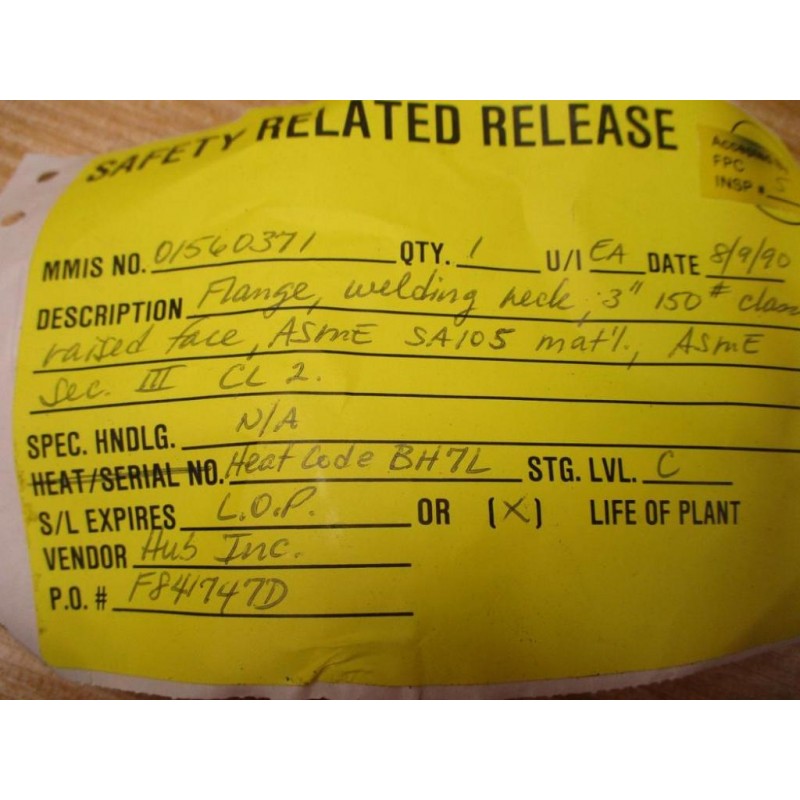 SAFETY RELATED RELEASE
Accepted
FPC
INSP #
MMIS NO. 01560371 QTY. 1 U/I EA DATE 8/9/90
DESCRIPTION Flange, welding neck, 3" 150# class
raised face, ASME SA105 mat'l., ASME
Sec. III CL 2.
SPEC. HNDLG. N/A
HEAT/SERIAL NO. Heat Code BH7L STG. LVL. C
S/L EXPIRES L.O.P. OR (X) LIFE OF PLANT
VENDOR Hub Inc.
P.O. # F841747D